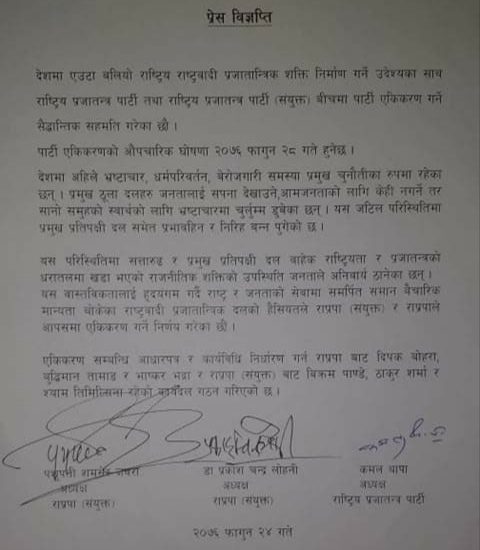 प्रेस विज्ञप्ति
देशमा एउटा बलियो राष्ट्रिय राष्ट्रवादी प्रजातान्त्रिक शक्ति निर्माण गर्ने उदेश्यका साथ
राष्ट्रिय प्रजातन्त्र पार्टी तथा राष्ट्रिय प्रजातन्त्र पार्टी (संयुक्त) बीचमा पार्टी एकिकरण गर्ने
सैद्धान्तिक सहमति गरेका छौ ।
पार्टी एकिकरणको औपचारिक घोषणा २०७६ फागुन २८ गते हुनेछ ।
देशमा अहिले भ्रष्टाचार, धर्मपरिवर्तन, बेरोजगारी समस्या प्रमुख चुनौतीका रुपमा रहेका
छन् । प्रमुख ठूला दलहरु जनतालाई सपना देखाउने,आमजनताको लागि केही नगर्ने तर
सानो समुहको स्वार्थको लागि भ्रष्टाचारमा चुर्लुम्म डुबेका छन् । यस जटिल परिस्थितिमा
प्रमुख प्रतिपक्षी दल समेत प्रभावहिन र निरिह बन्न पुगेको छ ।
यस परिस्थितिमा सत्तारुढ र प्रमुख प्रतिपक्षी दल बाहेक राष्ट्रियता र प्रजातन्त्रको
धरातलमा खडा भएको राजनीतिक शक्तिको उपस्थिति जनताले अनिवार्य ठानेका छन् ।
यस वास्तविकतालाई हृदयगम गर्दै राष्ट्र र जनताको सेवामा समर्पित समान वैचारिक
मान्यता बोकेका राष्ट्रवादी प्रजातान्त्रिक दलको हैसियतले राप्रपा (संयुक्त) र राप्रपाले
आपसमा एकिकरण गर्ने निर्णय गरेका छौ ।
एकिकरण सम्बन्धि आधारपत्र र कार्यबिधि निर्धारण गर्न राप्रपा बाट दिपक बोहरा,
बुद्धिमान तामाङ र भाष्कर भद्रा र राप्रपा (संयुक्त) बाट बिक्रम पाण्डे, ठाकुर शर्मा र
श्याम तिमिल्सिना रहेको कार्यदल गठन गरिएको छ ।
पशुपती शमशेर जबरा डा प्रकाश चन्द्र लोहनी कमल थापा
अध्यक्ष अध्यक्ष अध्यक्ष
राप्रपा (संयुक्त) राप्रपा (संयुक्त) राष्ट्रिय प्रजातन्त्र पार्टी
२०७६ फागुन २४ गते